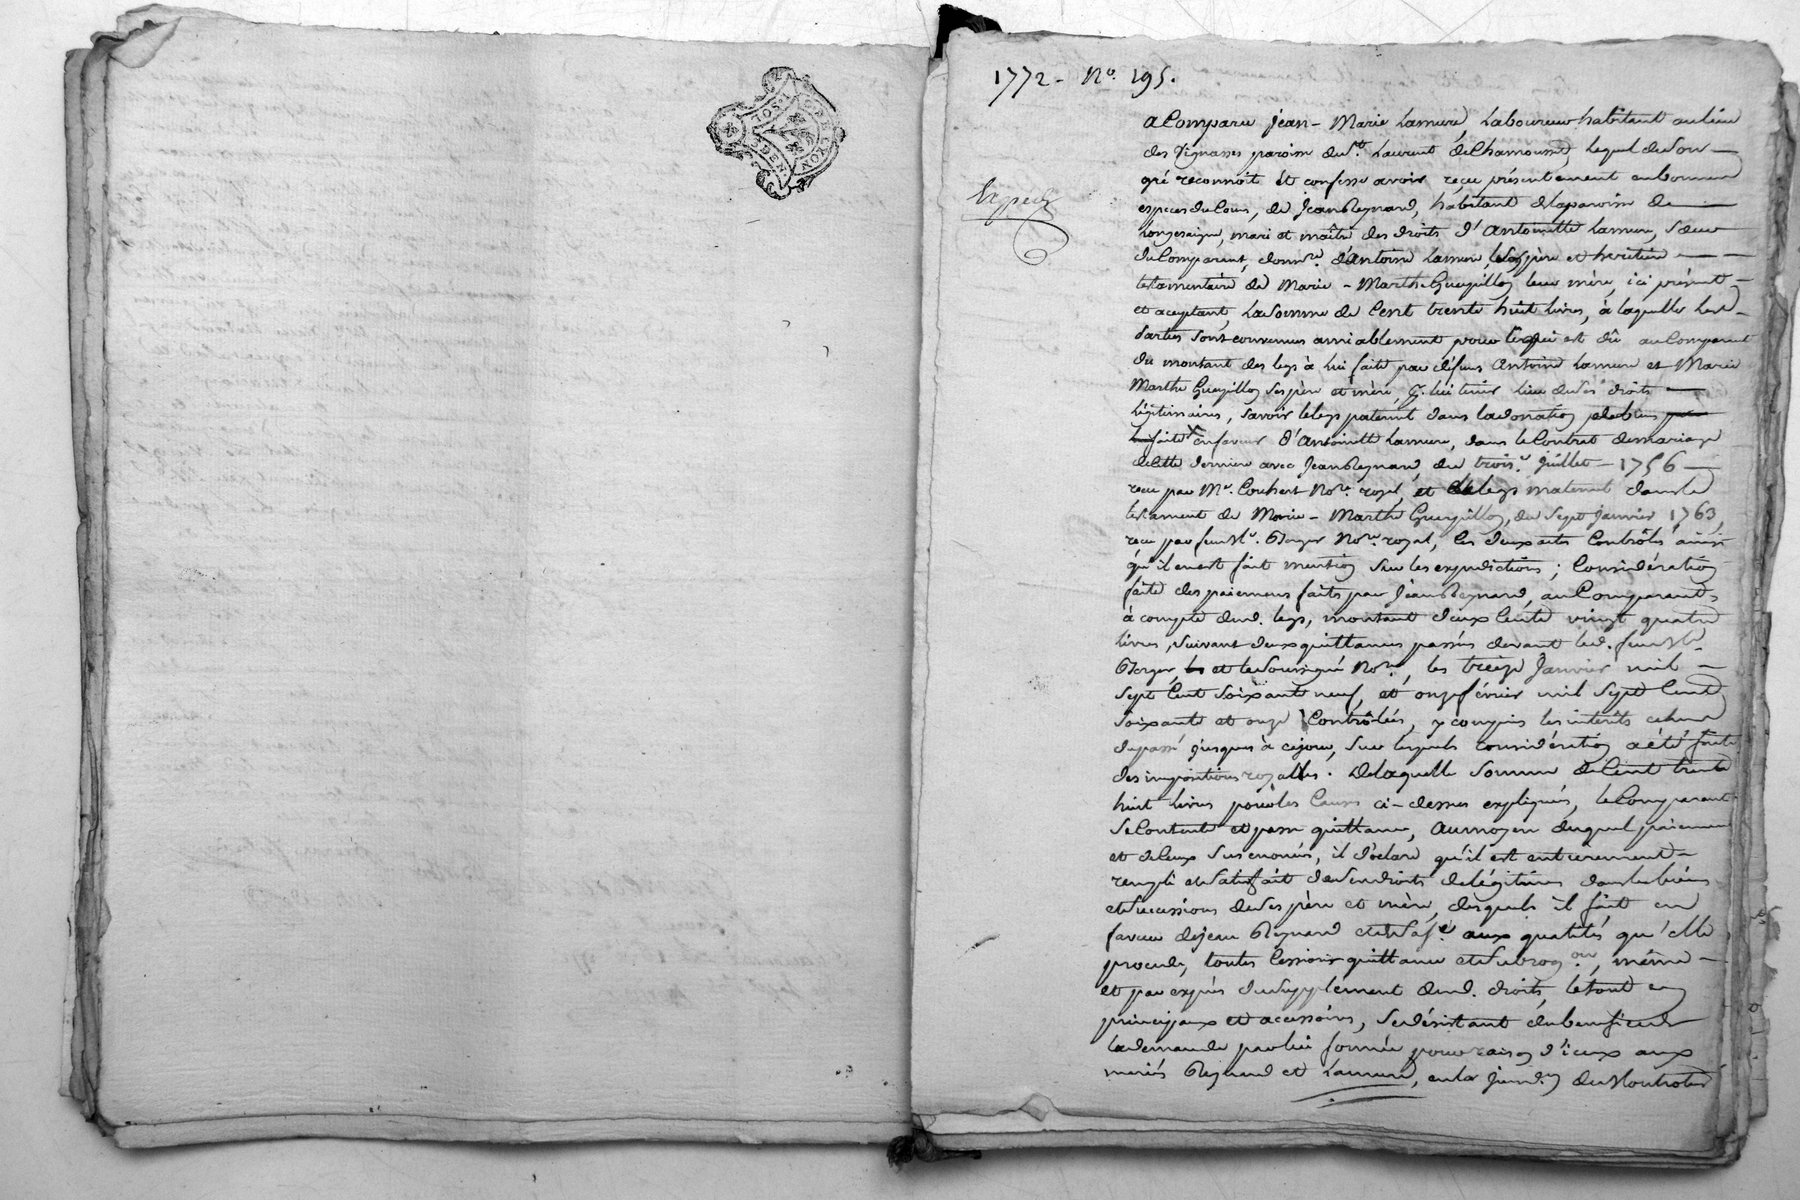 GEN. DE LYON
DOS.
DEN.
1772 - No. 195.
Expedié
A Comparu Jean-Marie Lamure, Laboureur habitant au lieu
des Vignasses paroisse de St. Laurent de Chamousset, lequel de son
gré reconnoit et confesse avoir reçu présentement en bonnes
especes du Cours, de Jean Reynard, habitant de la paroisse de
Longesaigne, mari et maître des droits d'Antoinette Lamure, Soeur
du Comparant, donnre. d'Antoine Lamure, père et heritiere
testamentaire de Marie-Marthe Guerpillon leur mère, ici présent
et aceptant, la Somme de Cent trente huit livres, à laquelle les
parties sont convenues amiablement pour ce qui est dû au Comparant
du montant des legs à lui faits par défuns Antoine Lamure et Marie
Marthe Guerpillon ses père et mère, p. lui tenir lieu de ses droits
légitimaires, savoir le legs paternel dans la donation de biens
faite en faveur d'Antoinette Lamure, dans le Contrat de mariage
de cette derniere avec Jean Reynard, du trois juillet - 1756
reçu par Me. Couhert Nore. royal, et le legs maternel dans le
testament de Marie-Marthe Guerpillon, du Sept Janvier 1763,
reçu par feu Me. Berger Nore. royal, les deux actes Contrôlés ainsi
qu'il en est fait mention sur les expeditions ; Considération
faite des paiemens faits par Jean Reynard, au Comparant
à compte desd. legs, montant deux Cents vingt quatre
livres, suivant deux quittances passées devant led. feu Me.
Berger, et le Soussigné Nore, les treize Janvier mil
Sept Cent Soixante neuf, et onze février mil Sept Cent
Soixante et onze Contrôlées, y compris les interêts
du passé jusques à ce jour, sur lesquels considération a été faite
des impositions royalles. De laquelle somme de Cent trente
huit livres pour les Causes ci-dessus expliquées, le Comparant
Se Contente et passe quittance, au moyen duquel paiement
et de Ceux Susénoncés, il déclare qu'il est entierement
rempli et satisfait de ses droits de légitimes dans les biens
et Successions de ses père et mère, desquels il fait en
faveur de Jean Reynard et de sa fe. aux qualités qu'elle
procede, toutes Cessions quittance et Subrogon, même
et par exprès du Supplément desd. droits, le tout en
principaux et accessoires, se désistant du benefice de
la demande par lui formée pour raison d'iceux aux
mariés Reynard et Lamure, en la